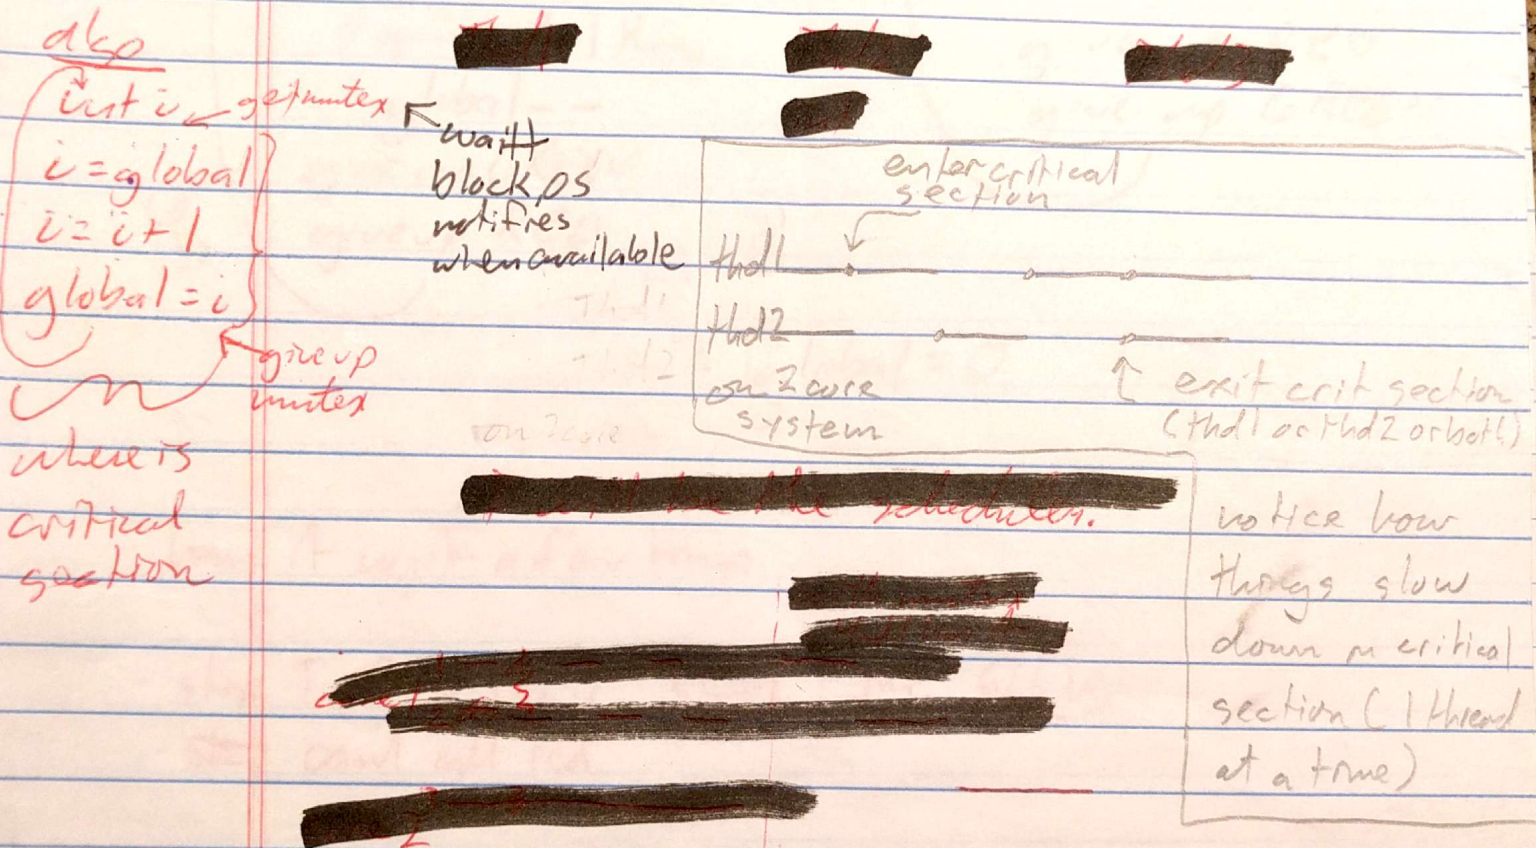 also
int i
get mutex
i = global
i = i + 1
global = i
give up
mutex
where is
critical
section
wait
block, os
notifies
when available
enter critical
section
thd1
thd2
on 2 core
system
exit crit section
(thd1 or thd2 or both)
the scheduler.
notice how
things slow
down in critical
section (1 thread
at a time)